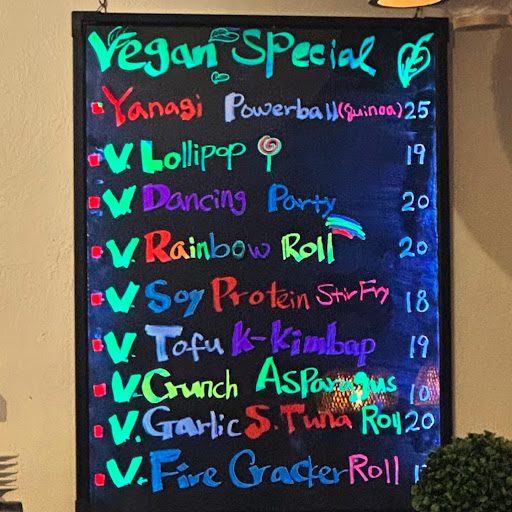 Vegan Special
Yanagi Powerball (quinoa) 25
V. Lollipop 19
V. Dancing Party 20
V. Rainbow Roll 20
V. Soy Protein Stir Fry 18
V. Tofu K-Kimbap 19
V. Crunch Asparagus 10
V. Garlic S. Tuna Roll 20
V. Fire Cracker Roll